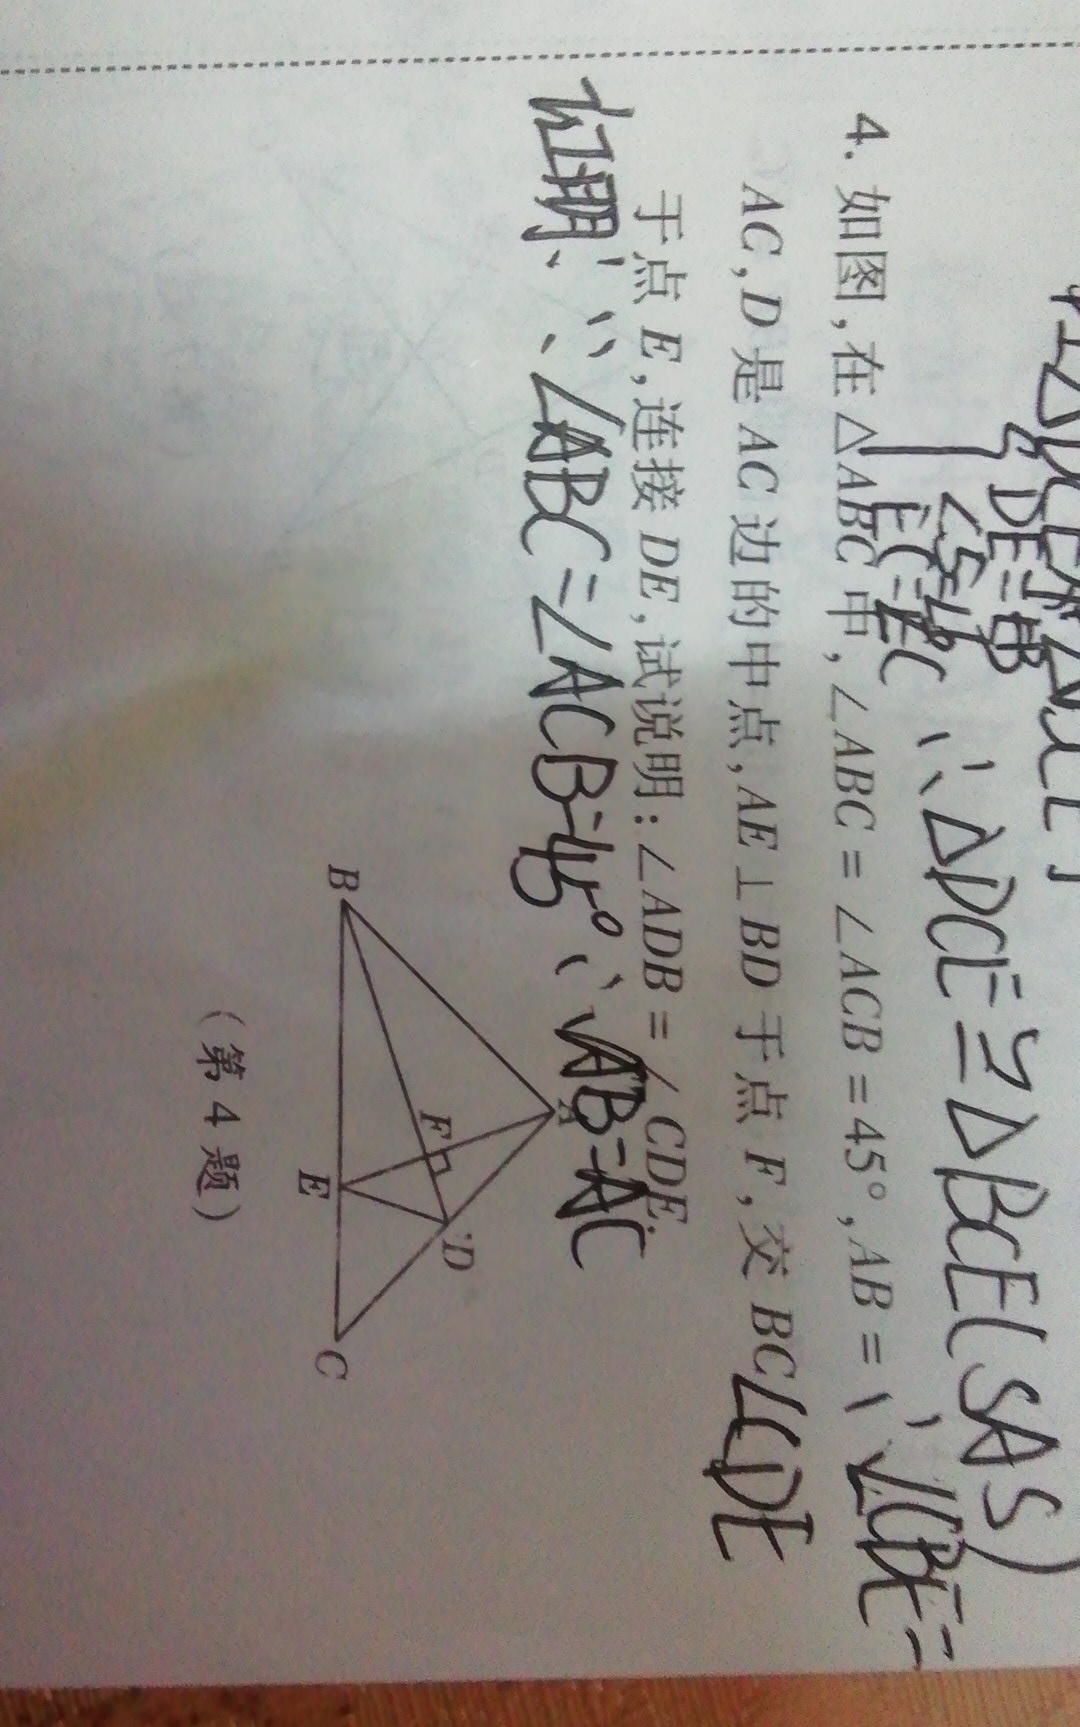 △DCE≌△BCE(SAS)
∴∠CBE=
∠CDE
4. 如图,在△ABC中,∠ABC=∠ACB=45°,AB=
AC,D是AC边的中点,AE⊥BD于点F,交BC
于点E,连接DE,试说明:∠ADB=∠CDE.
证明:∵∠ABC=∠ACB=45°∴AB=AC
A
B
C
D
E
F
(第4题)